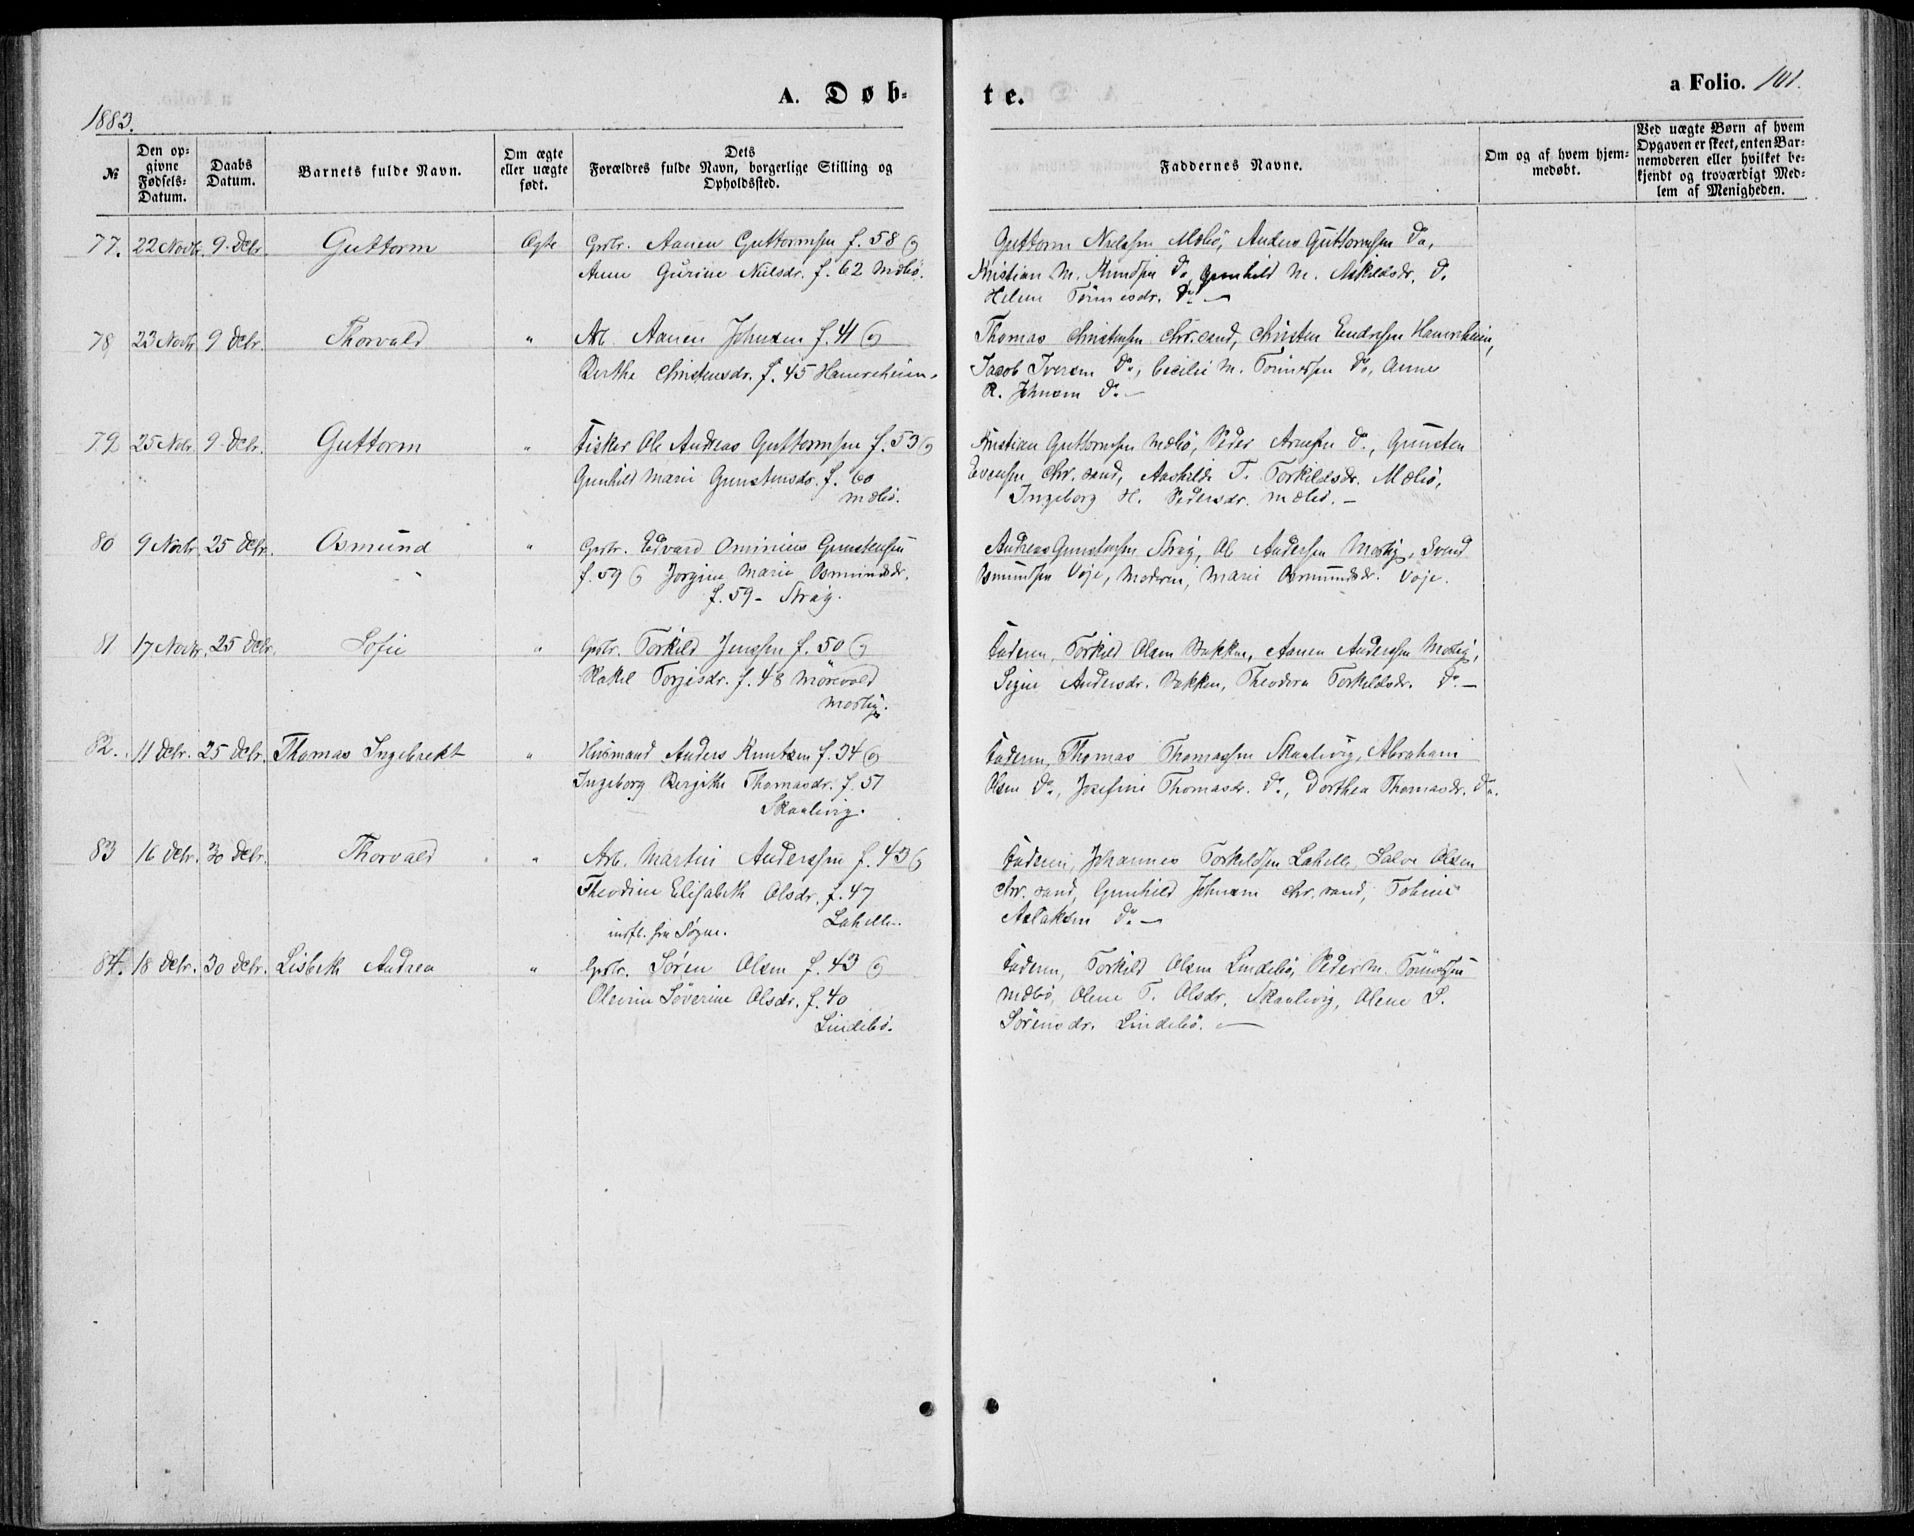 A. Døb-
te.
a Folio. 101.
1883.
№
Den op-
givne
Fødsels-
Datum.
Daabs
Datum.
Barnets fulde Navn.
Om ægte
eller uægte
født.
Dets
Forældres fulde Navn, borgerlige Stilling og
Opholdssted.
Faddernes Navne.
Om og af hvem hjem-
medøbt.
Ved uægte Børn af hvem
Opgaven er skeet, enten Bar-
nemoderen eller hvilket be-
kjendt og troværdigt Med-
lem af Menigheden.
77. 22 Novbr. 9. Dcbr. Guttorm Ægte Gbr. Aanen Guttormsen f. 58 og
Anne Gurine Nielsdr. f. 62 Mæbø.
Guttorm Nielsen Mæbø, Anders Guttormsen Do,
Kristian M. Knudsen Do, Gunhild M. Askildsdr. Do
Helene Tønnesdr. Do —
78 23 Novbr 9 Dcbr. Thorvald " Arb. Aanen Johnsen f. 41 og
Berthe Christensdr. f. 45 Hannevheien.
Thomas Christensen Chr.sand, Christen Endresen Hannevheien,
Jacob Iversen Do, Cecilie M. Tønnesen Do, Anne
R. Johnsen Do —
79 25 Nobr. 9 Dcbr. Guttorm " Fisker Ole Andreas Guttormsen f. 53 og
Gunhild Marie Gunstensdr. f. 60
Mæbø.
Kristian Guttormsen Mæbø, Peder Arnesen Do, Gunsten
Evensen Chr.sand, Aashilde T. Torkildsdr. Mæbø,
Ingeborg H. Pedersdr. Mæbø. —
80 9 Novbr. 25 Dcbr. Osmund " Gbr. Edvard Ominius Gunstensen
f. 59 og Jorgine Marie Osmundsdr.
f. 59 - Straÿ.
Andreas Gunstensen Straÿ, Ol Andersen Mosbÿ, Svend
Osmundsen Voje, Moderen, Marie Osmundsdr. Voje.
81 17 Novbr. 25 Dcbr. Sofie " Gbr. Torkild Jenssen f. 50 og
Rakel Torjesdr. f. 48 Mörevold
Mosbÿ.
Faderen, Torkild Olsen Bakken, Aanen Anderssen Mosbÿ,
Signe Andersdr. Bakken, Theodora Torkildsdr. Do —
82. 11 Dcbr. 25 Dcbr. Thomas Ingebrekt " Husmand Anders Knutsen f. 34 og
Ingeborg Bergitte Thomasdr. f. 51
Skaalevig.
Faderen, Thomas Thomassen Skaalevig, Abraham
Olsen Do, Josefine Thomasdr. Do, Dorthea Thomasdr. Do.
83 16 Dcbr. 30 Dcbr. Thorvald " Arb. Martin Anderssen f. 43 og
Theodine Elisabeth Olsdr. f. 47
indfl. fra Søgne. Lahelle.
Faderen, Johannes Torkildsen Lahelle, Salve Olsen
Chr.sand, Gunhild Johnsen Chr.sand, Tobine
Aslaksen Do —
84. 18 Dcbr. 30 Dcbr. Lisbeth Andrea " Gbr. Søren Olsen f. 43 og
Olevine Söverine Olsdr. f. 40
Lindebø.
Faderen, Torkild Olsen Lindebø, Peder M. Tönnesen
Mæbø, Olene T. Olsdr. Skaalevig, Olene S.
Sörensdr. Lindebø. —